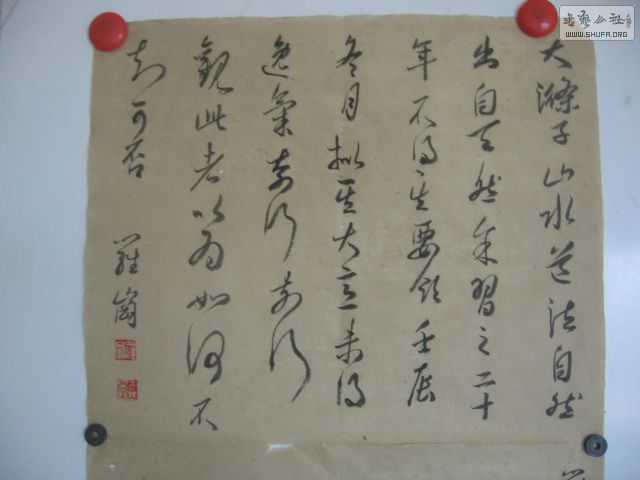 大滌子山水道法自然
出自天然余習之二十
年不得其要領壬辰
冬月擬其大意未得
逸氣奈何奈何
觀此老以为如何不
知可否
羅崗
書藝公社
WWW.SHUFA.ORG